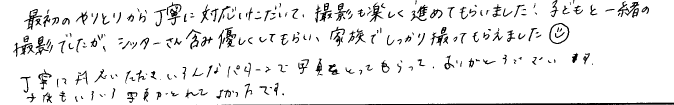 最初のやりとりから丁寧に対応いただいて、撮影も楽しく進めてもらいました！子どもと一緒の
撮影でしたが、シッターさん含み優しくしてもらい、家族でしっかり撮ってもらえました☺
丁寧に対応いただき、いろんなパターンで写真をとってもらって、ありがとうございます。
子供もいろいろ写真がとれてよかったです。